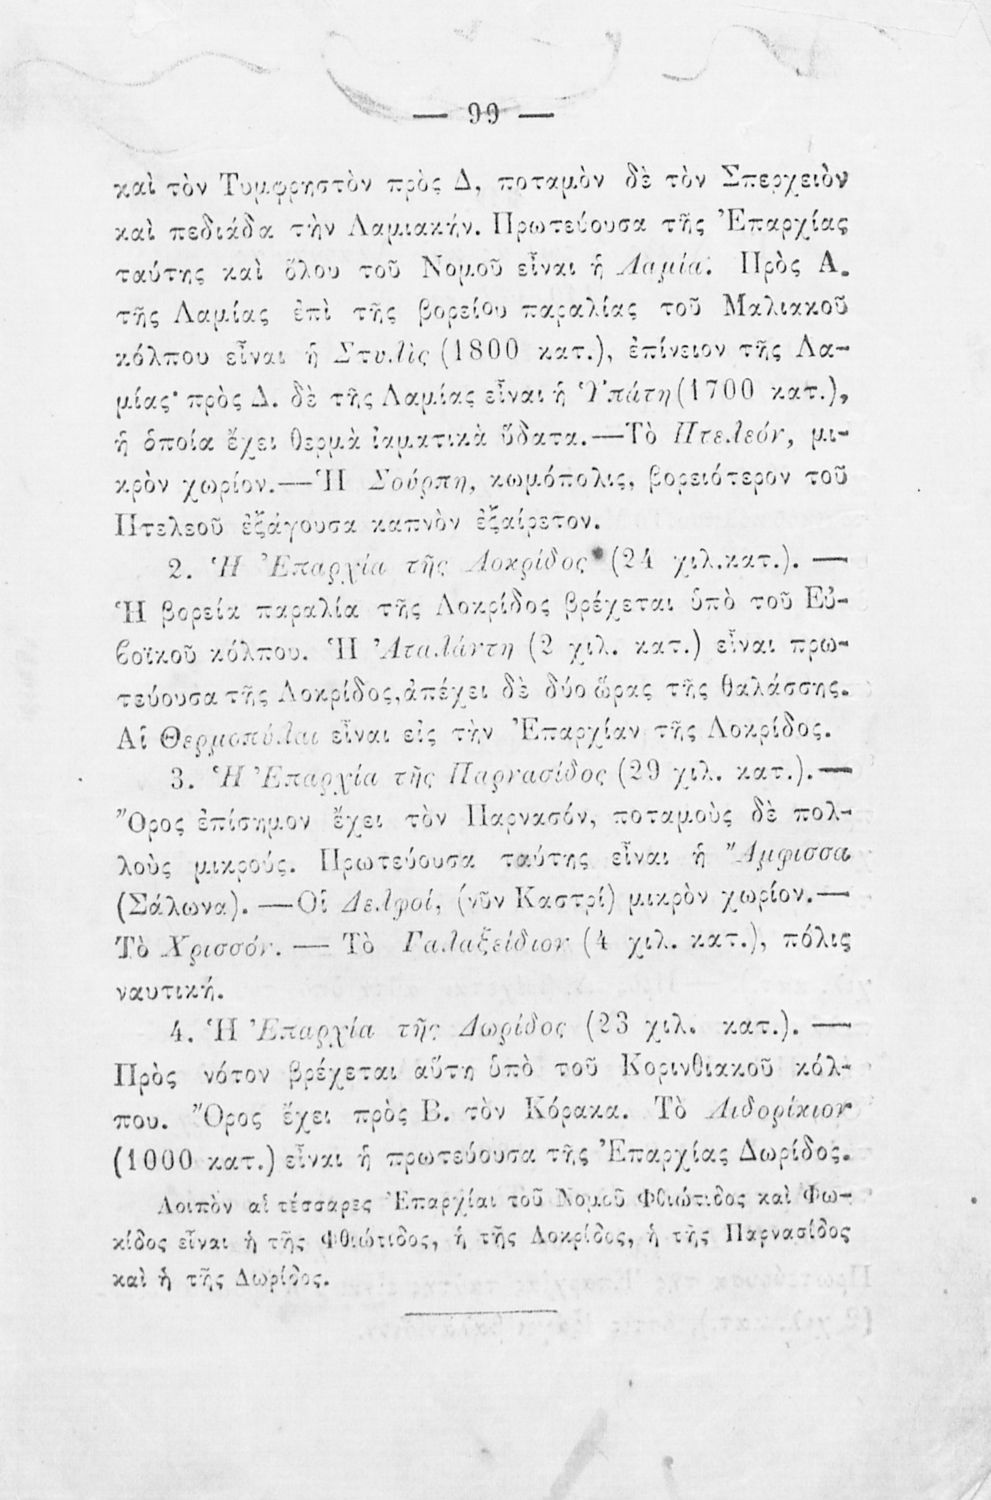 — 99 —
καὶ τὸν Τυμφρηστὸν πρὸς Δ, ποταμὸν δὲ τὸν Σπερχειὸν
καὶ πεδιάδα τὴν Λαμιακήν. Πρωτεύουσα τῆς Ἐπαρχίας
ταύτης καὶ ὅλου τοῦ Νομοῦ εἶναι ἡ Λαμία. Πρὸς Α.
τῆς Λαμίας ἐπὶ τῆς βορείου παραλίας τοῦ Μαλιακοῦ
κόλπου εἶναι ἡ Στυλὶς (1800 κατ.), ἐπίνειον τῆς Λα-
μίας· πρὸς Δ. δὲ τῆς Λαμίας εἶναι ἡ Ὑπάτη (1700 κατ.),
ἡ ὁποία ἔχει θερμὰ ἰαματικὰ ὕδατα.—Τὸ Πτελεόν, μι-
κρὸν χωρίον.—Ἡ Σούρπη, κωμόπολις, βορειότερον τοῦ
Πτελεοῦ ἐξάγουσα καπνὸν ἐξαίρετον.
2. Ἡ Ἐπαρχία τῆς Λοκρίδος (24 χιλ.κατ.). —
Ἡ βορεία παραλία τῆς Λοκρίδος βρέχεται ὑπὸ τοῦ Εὐ-
ϐοϊκοῦ κόλπου. Ἡ Ἀταλάντη (2 χιλ. κατ.) εἶναι πρω-
τεύουσα τῆς Λοκρίδος, ἀπέχει δὲ δύο ὥρας τῆς θαλάσσης.
Αἱ Θερμοπύλαι εἶναι εἰς τὴν Ἐπαρχίαν τῆς Λοκρίδος.
3. Ἡ Ἐπαρχία τῆς Παρνασίδος (29 χιλ. κατ.).—
Ὄρος ἐπίσημον ἔχει τὸν Παρνασόν, ποταμοὺς δὲ πολ-
λοὺς μικρούς. Πρωτεύουσα ταύτης εἶναι ἡ Ἄμφισσα
(Σάλωνα). —Οἱ Δελφοί, (νῦν Καστρί) μικρὸν χωρίον.—
Τὸ Χρισσόν. — Τὸ Γαλαξείδιον (4 χιλ. κατ.), πόλις
ναυτική.
4. Ἡ Ἐπαρχία τῆς Δωρίδος (23 χιλ. κατ.). —
Πρὸς νότον βρέχεται αὕτη ὑπὸ τοῦ Κορινθιακοῦ κόλ-
που. Ὄρος ἔχει πρὸς Β. τὸν Κόρακα. Τὸ Λιδορίκιον
(1000 κατ.) εἶναι ἡ πρωτεύουσα τῆς Ἐπαρχίας Δωρίδος.
Λοιπὸν αἱ τέσσαρες Ἐπαρχίαι τοῦ Νομοῦ Φθιώτιδος καὶ Φω-
κίδος εἶναι ἡ τῆς Φθιώτιδος, ἡ τῆς Λοκρίδος, ἡ τῆς Παρνασίδος
καὶ ἡ τῆς Δωρίδος.